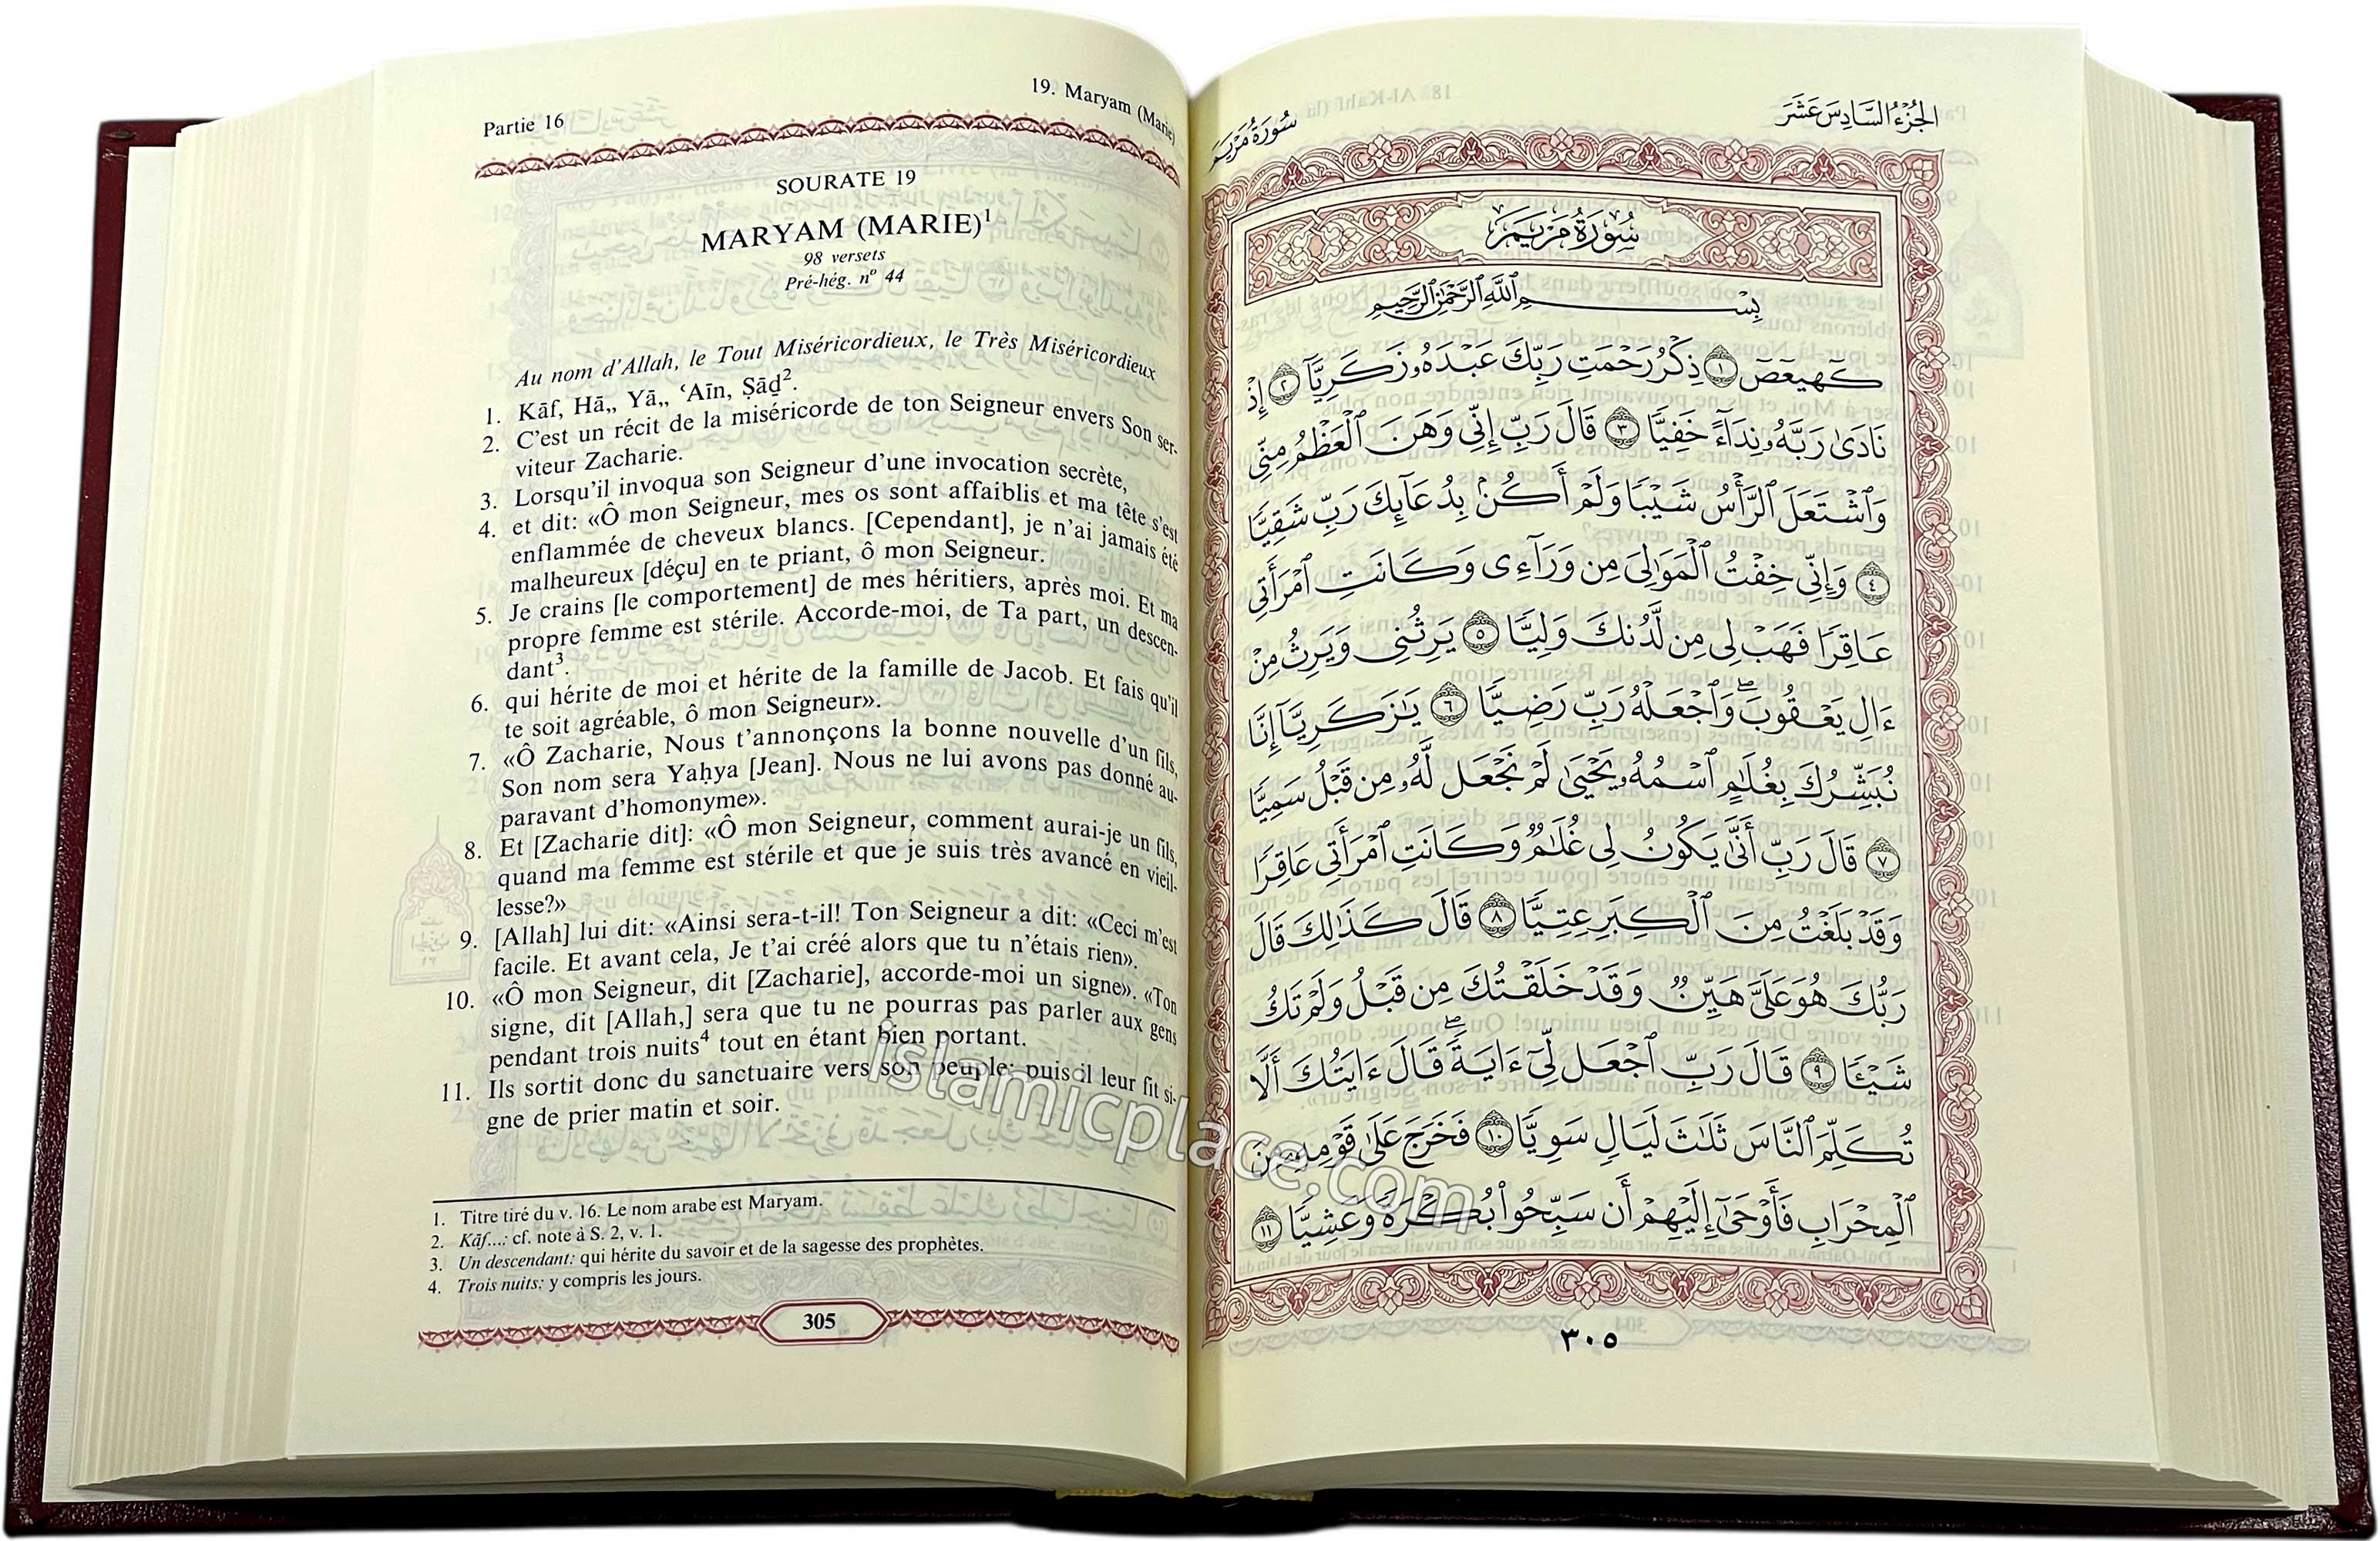 Partie 16
19. Maryam (Marie)
SOURATE 19
MARYAM (MARIE)¹
98 versets
Pré-hég. nº 44
Au nom d'Allah, le Tout Miséricordieux, le Très Miséricordieux
1. Kāf, Hā,, Yā,, ‘Aīn, Ṣāḏ².
2. C'est un récit de la miséricorde de ton Seigneur envers Son ser-
viteur Zacharie.
3. Lorsqu'il invoqua son Seigneur d'une invocation secrète,
4. et dit: «Ô mon Seigneur, mes os sont affaiblis et ma tête s'est
enflammée de cheveux blancs. [Cependant], je n'ai jamais été
malheureux [déçu] en te priant, ô mon Seigneur.
5. Je crains [le comportement] de mes héritiers, après moi. Et ma
propre femme est stérile. Accorde-moi, de Ta part, un descen-
dant³.
6. qui hérite de moi et hérite de la famille de Jacob. Et fais qu'il
te soit agréable, ô mon Seigneur».
7. «Ô Zacharie, Nous t'annonçons la bonne nouvelle d'un fils,
Son nom sera Yaḥya [Jean]. Nous ne lui avons pas donné au-
paravant d'homonyme».
8. Et [Zacharie dit]: «Ô mon Seigneur, comment aurai-je un fils,
quand ma femme est stérile et que je suis très avancé en vieil-
lesse?»
9. [Allah] lui dit: «Ainsi sera-t-il! Ton Seigneur a dit: «Ceci m'est
facile. Et avant cela, Je t'ai créé alors que tu n'étais rien».
10. «Ô mon Seigneur, dit [Zacharie], accorde-moi un signe». «Ton
signe, dit [Allah,] sera que tu ne pourras pas parler aux gens
pendant trois nuits⁴ tout en étant bien portant.
11. Ils sortit donc du sanctuaire vers son peuple; puis il leur fit si-
gne de prier matin et soir.
1. Titre tiré du v. 16. Le nom arabe est Maryam.
2. Kāf...: cf. note à S. 2, v. 1.
3. Un descendant: qui hérite du savoir et de la sagesse des prophètes.
4. Trois nuits: y compris les jours.
305
islamicplace.com
الجُزْءُ السَّادِسَ عَشَرَ
سُورَةُ مَرْيَم
سُورَةُ مَرْيَمَ
بِسْمِ ٱللَّهِ ٱلرَّحْمَٰنِ ٱلرَّحِيمِ
كٓهيعٓصٓ ١ ذِكْرُ رَحْمَتِ رَبِّكَ عَبْدَهُۥ زَكَرِيَّآ ٢ إِذْ
نَادَىٰ رَبَّهُۥ نِدَآءً خَفِيًّا ٣ قَالَ رَبِّ إِنِّى وَهَنَ ٱلْعَظْمُ مِنِّى
وَٱشْتَعَلَ ٱلرَّأْسُ شَيْبًا وَلَمْ أَكُنۢ بِدُعَآئِكَ رَبِّ شَقِيًّا
٤ وَإِنِّى خِفْتُ ٱلْمَوَٰلِىَ مِن وَرَآءِى وَكَانَتِ ٱمْرَأَتِى
عَاقِرًا فَهَبْ لِى مِن لَّدُنكَ وَلِيًّا ٥ يَرِثُنِى وَيَرِثُ مِنْ
ءَالِ يَعْقُوبَ ۖ وَٱجْعَلْهُ رَبِّ رَضِيًّا ٦ يَٰزَكَرِيَّآ إِنَّا
نُبَشِّرُكَ بِغُلَٰمٍ ٱسْمُهُۥ يَحْيَىٰ لَمْ نَجْعَل لَّهُۥ مِن قَبْلُ سَمِيًّا
٧ قَالَ رَبِّ أَنَّىٰ يَكُونُ لِى غُلَٰمٌ وَكَانَتِ ٱمْرَأَتِى عَاقِرًا
وَقَدْ بَلَغْتُ مِنَ ٱلْكِبَرِ عِتِيًّا ٨ قَالَ كَذَٰلِكَ قَالَ
رَبُّكَ هُوَ عَلَىَّ هَيِّنٌ وَقَدْ خَلَقْتُكَ مِن قَبْلُ وَلَمْ تَكُ
شَيْـًٔا ٩ قَالَ رَبِّ ٱجْعَل لِّىٓ ءَايَةً ۖ قَالَ ءَايَتُكَ أَلَّا
تُكَلِّمَ ٱلنَّاسَ ثَلَٰثَ لَيَالٍ سَوِيًّا ١٠ فَخَرَجَ عَلَىٰ قَوْمِهِۦ مِنَ
ٱلْمِحْرَابِ فَأَوْحَىٰٓ إِلَيْهِمْ أَن سَبِّحُوا۟ بُكْرَةً وَعَشِيًّا ١١
٣٠٥